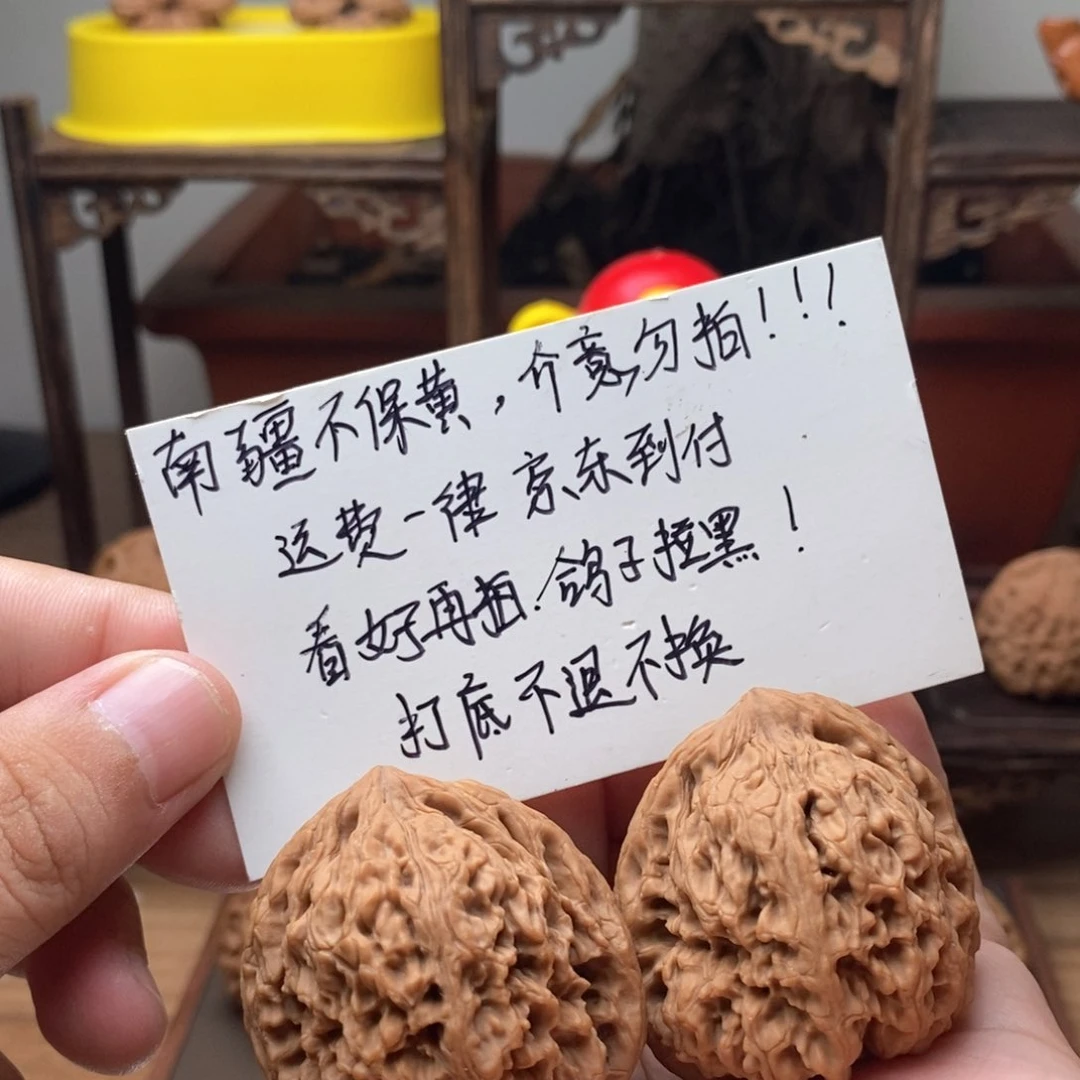 南疆不保黄，介意勿拍！！！
运费一律京东到付
看好再拍.鸽子拉黑！
打底不退不换